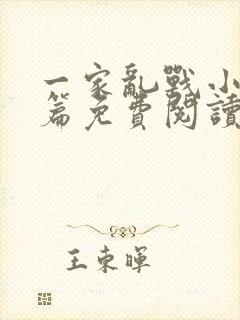 一家亂戰小
篇免費閱讀
王東暉